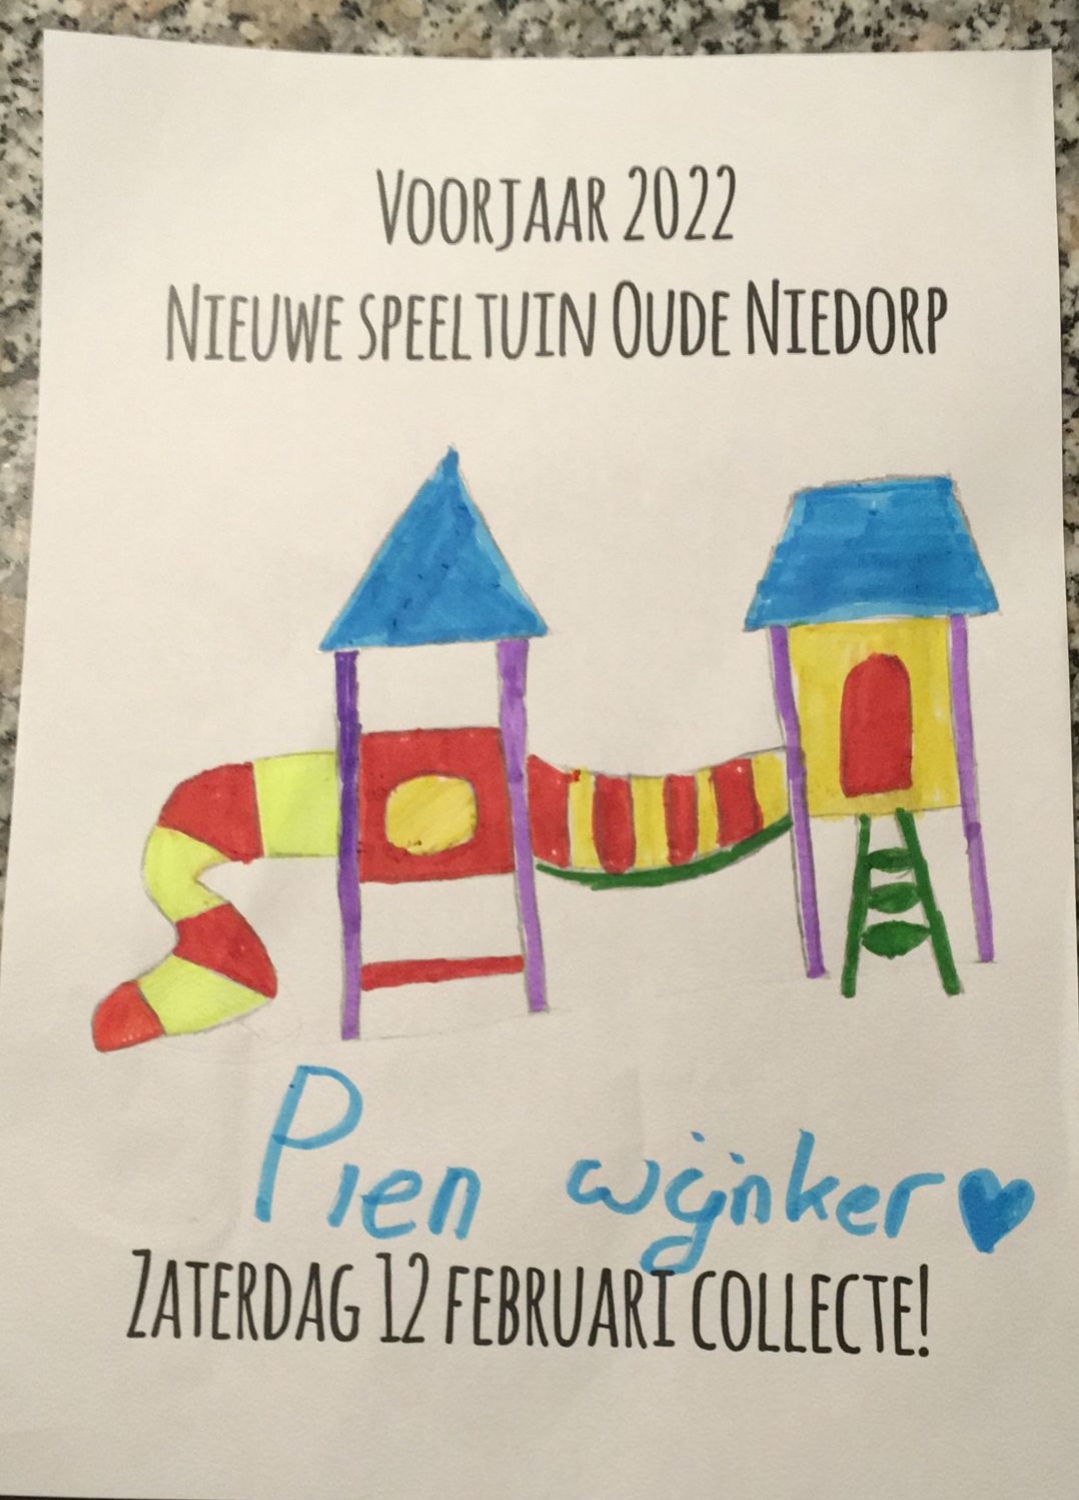 Voorjaar 2022
Nieuwe speeltuin Oude Niedorp
Pien wijnker
Zaterdag 12 februari collecte!